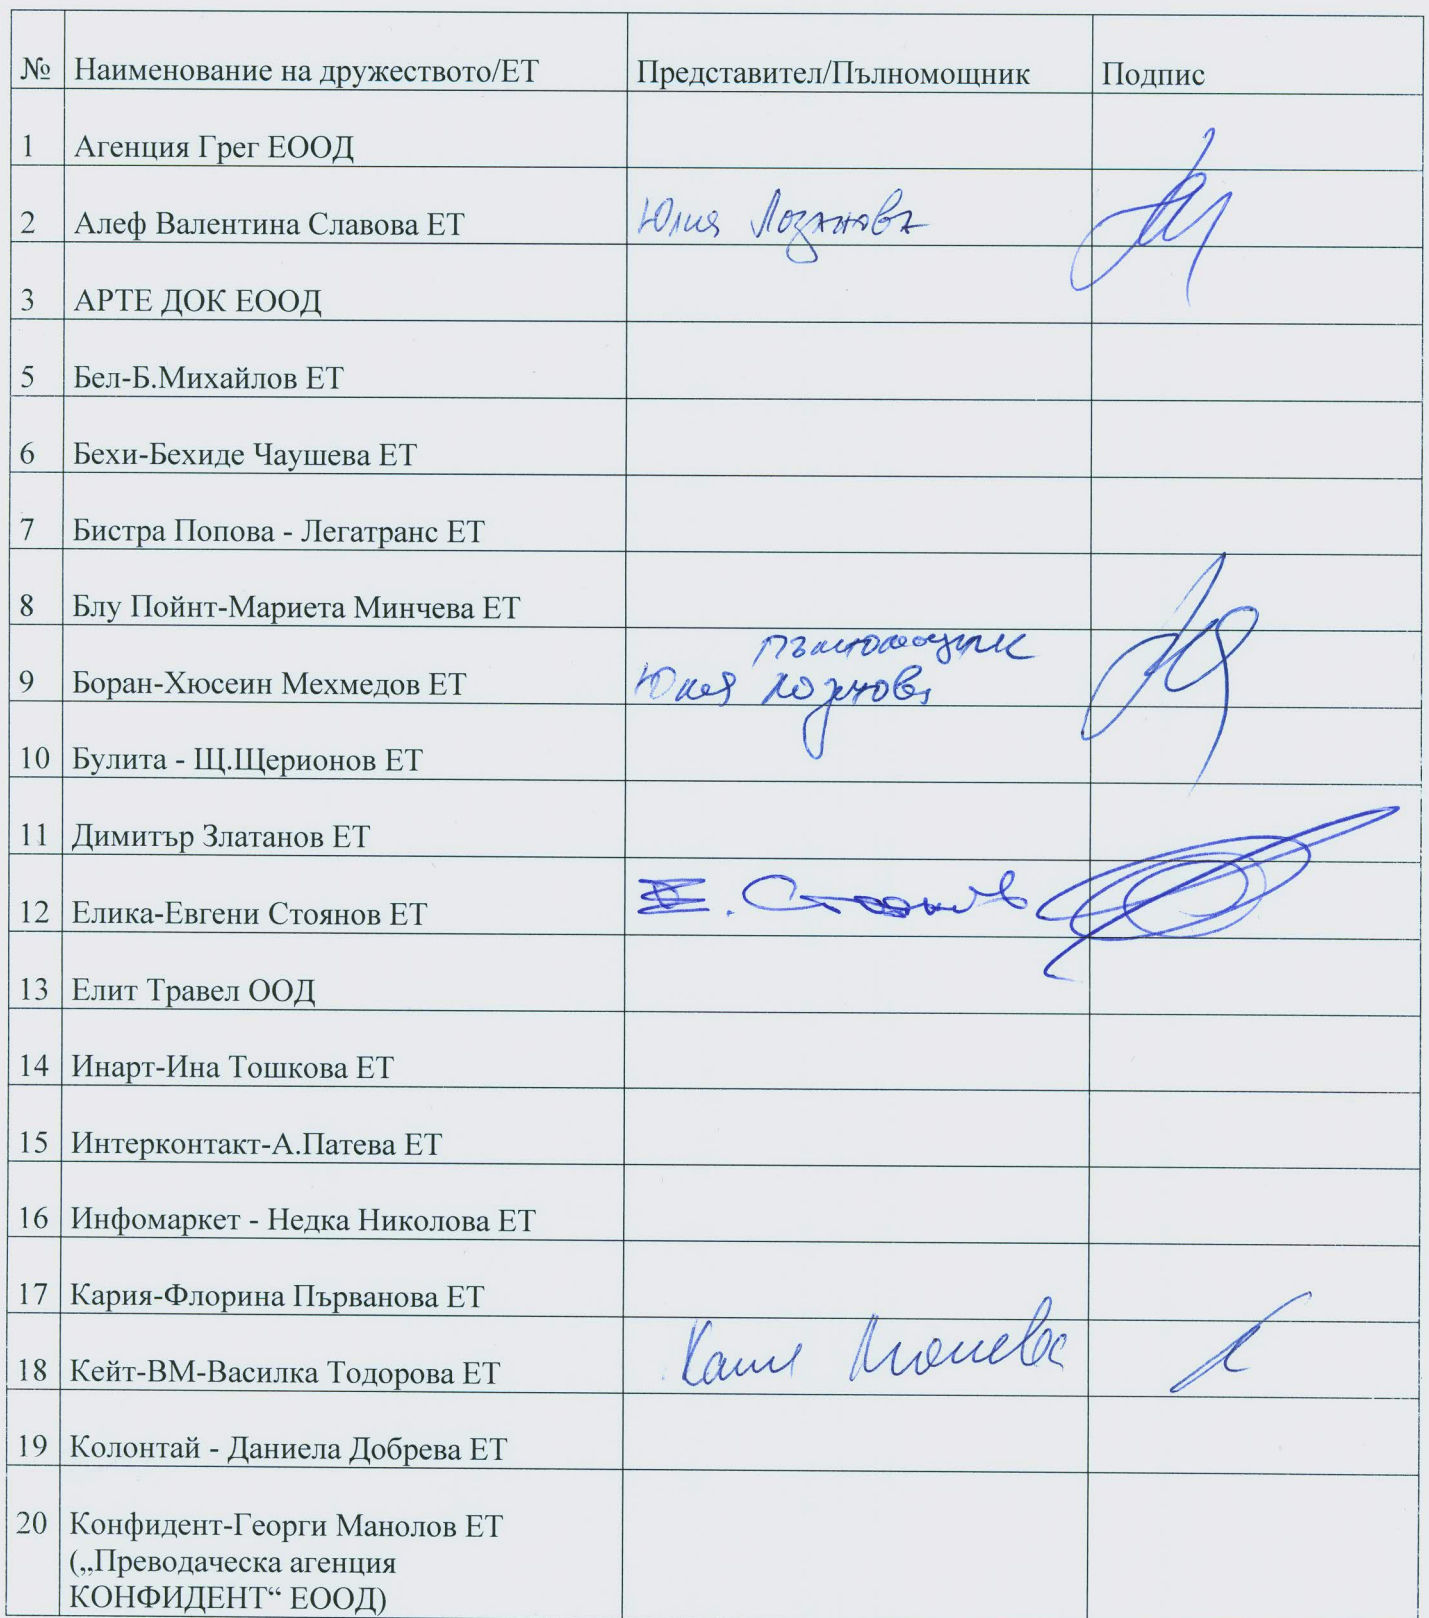 № Наименование на дружеството/ЕТ Представител/Пълномощник Подпис
1 Агенция Грег ЕООД
2 Алеф Валентина Славова ЕТ Юлия Лозанова
3 АРТЕ ДОК ЕООД
5 Бел-Б.Михайлов ЕТ
6 Бехи-Бехиде Чаушева ЕТ
7 Бистра Попова - Легатранс ЕТ
8 Блу Пойнт-Мариета Минчева ЕТ
пълномощник
9 Боран-Хюсеин Мехмедов ЕТ Юлия Лозанова
10 Булита - Щ.Щерионов ЕТ
11 Димитър Златанов ЕТ
12 Елика-Евгени Стоянов ЕТ Е. Стоянов
13 Елит Травел ООД
14 Инарт-Ина Тошкова ЕТ
15 Интерконтакт-А.Патева ЕТ
16 Инфомаркет - Недка Николова ЕТ
17 Кария-Флорина Първанова ЕТ
18 Кейт-ВМ-Василка Тодорова ЕТ
19 Колонтай - Даниела Добрева ЕТ
20 Конфидент-Георги Манолов ЕТ
(„Преводаческа агенция
КОНФИДЕНТ“ ЕООД)